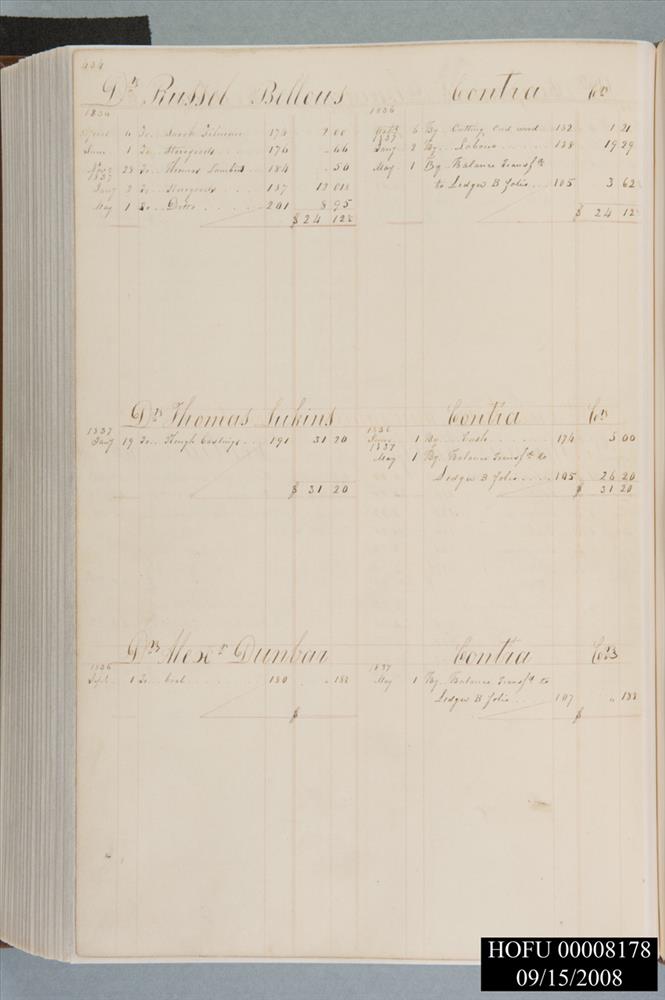 434
Drs Russel Bellous Contra Cr
1836 1836
6 To Sarah Gilman 174 2 00
June 1 To Storegoods 176 " 66
Novr 28 To Thomas Lambert 184 " 50
1837
Jany 2 To Storegoods 187
May 1 To Ditto 201 8 95
$ 24 12
6 By Cutting Cord wood 182 1 21
1837
Jany 2 By Labour 188 19 29
May 1 By Balance Transfd
to Ledger B folio 105 3 62
$ 24 12
Drs Thomas Contra Cr
1837 1836
Jany 19 To Plough Castings 191 31 20
June 1 By Cash 174 5 00
1837
May 1 By Balance Transfd to
Ledger B folio 105 26 20
$ 31 20 $ 31 20
Drs Alexr Dunbar Contra Crs
1836 1837
Sept 1 To Coal 180 " 188
May 1 By Balance Transfd to
Ledger B folio 107 " 188
$ $
HOFU 00008178
09/15/2008